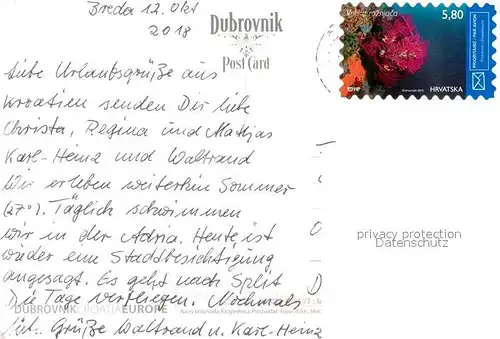 Breda 12. Okt
2018
Dubrovnik
Post Card
5,80
HRVATSKA
PRIORITAIRE / PAR AVION
Liebe Urlaubsgrüße aus
Kroatien senden Dir liebe
Christa, Regina und Mathias
Karl-Heinz und Waltraud
Wir erleben weiterhin Sommer
(27°). Täglich schwimmen
wir in der Adria. Heute ist
wieder eine Stadtbesichtigung
angesagt. Es geht nach Split
Die Tage verfliegen. Nochmals
Grüße Waltraud u. Karl-Heinz
DUBROVNIK CROATIA EUROPE
privacy protection
Datenschutz